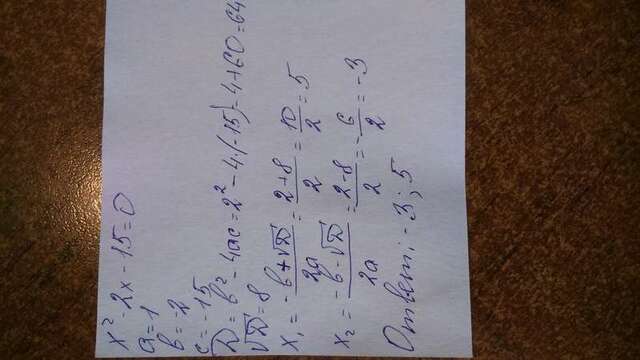 x² - 2x - 15 = 0
a = 1
b = -2
c = -15
D = b² - 4ac = 2² - 4·(-15) = 4 + 60 = 64
√D = 8
x₁ = -b+√D/2a = 2+8/2 = 10/2 = 5
x₂ = -b-√D/2a = 2-8/2 = -6/2 = -3
Ответ: -3; 5